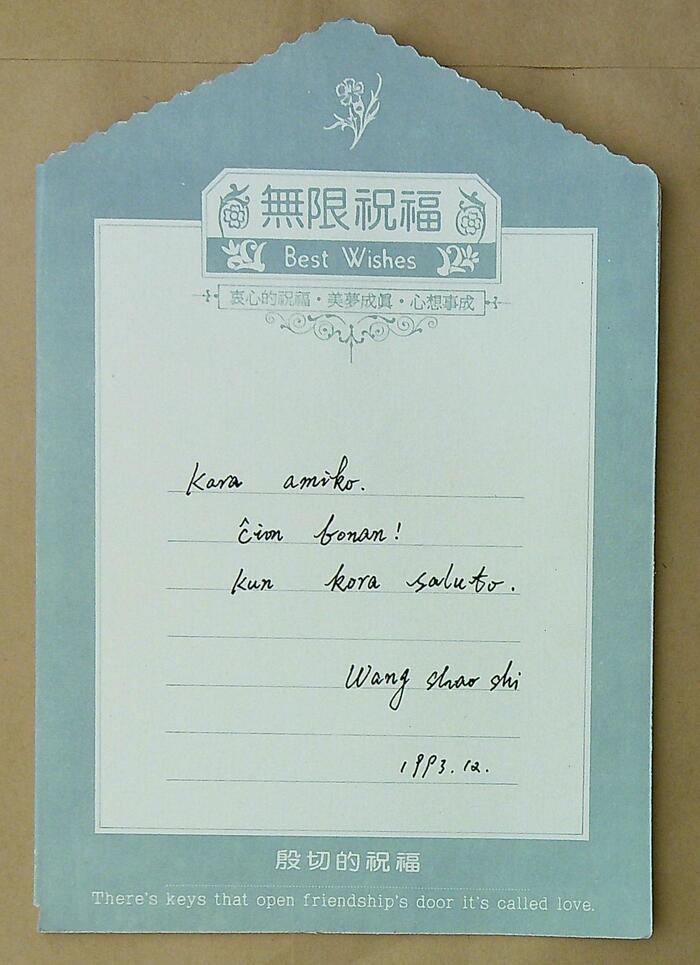 無限祝福
Best Wishes
衷心的祝福·美夢成眞·心想事成
Kara amiko.
ĉion bonan!
kun kora saluto.
Wang shao shi
1993.12.
殷切的祝福
There's keys that open friendship's door it's called love.